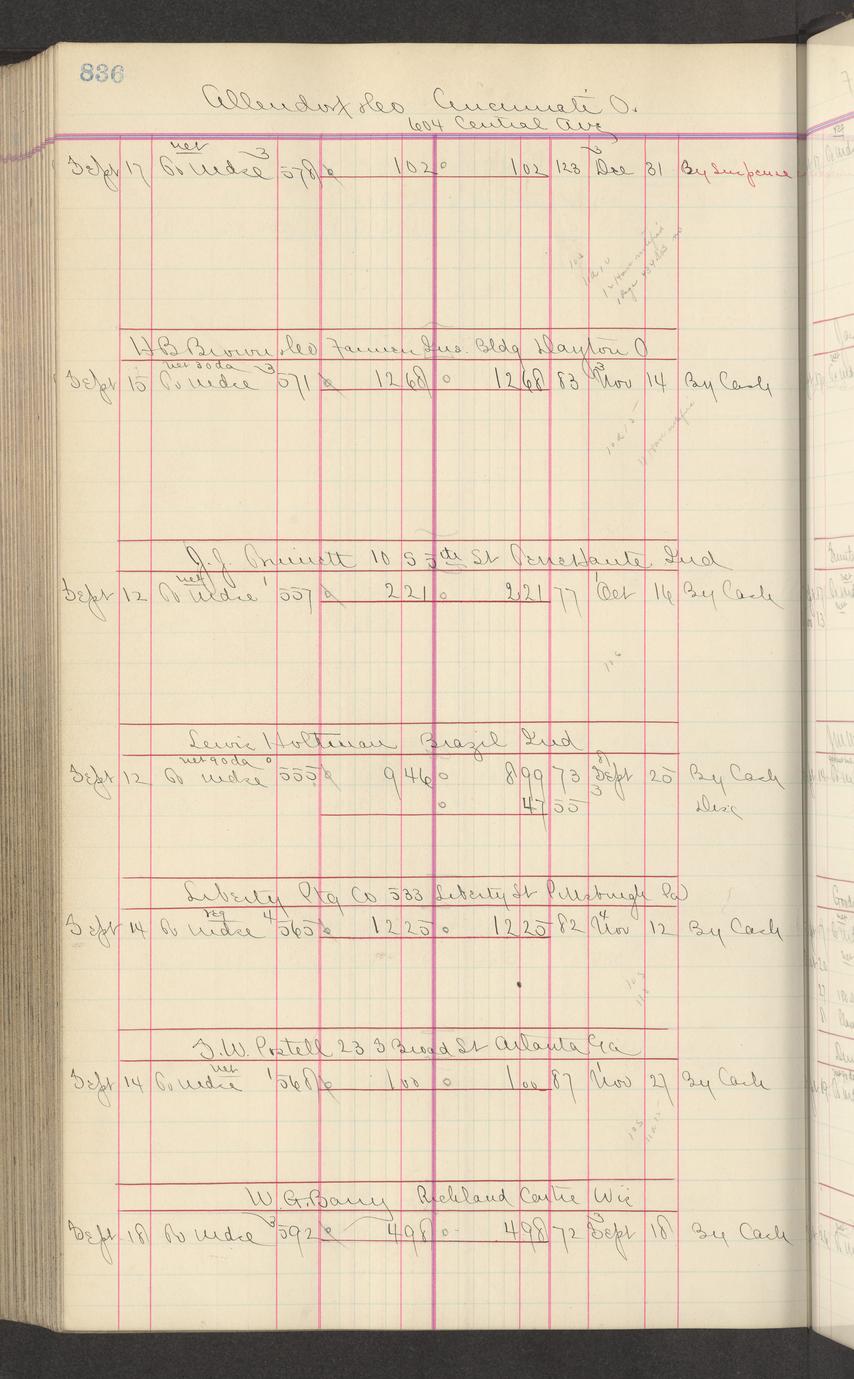 836
Allendorf & Co Cincinnati O.
604 Central Ave
net 3 3
Sept 17 To Mdse 578 102 102 123 Dec 31 By Suspense
H B Brown & Co Ins. Bldg Dayton O
net 30 da 3 3
Sept 15 To Mdse 571 1268 1268 83 Nov 14 By Cash
J. J. 10 S 5th St Terre Haute Ind
net 1 1
Sept 12 To Mdse 557 221 221 77 Oct 16 By Cash
Lewis Holtman Brazil Ind
net 90 da
Sept 12 To Mdse 555 946 899 73 Sept 25 By Cash
47 55 Disc
Liberty Ptg Co 533 Liberty St Pittsburgh Pa
reg 4 4
Sept 14 To Mdse 565 1225 1225 82 Nov 12 By Cash
T. W. Postell 23 S Broad St Atlanta Ga
net 1 1
Sept 14 To Mdse 568 100 100 87 Nov 27 By Cash
W. G. Barry Richland Centre Wis
3 3
Sept 18 To Mdse 592 498 498 72 Sept 18 By Cash